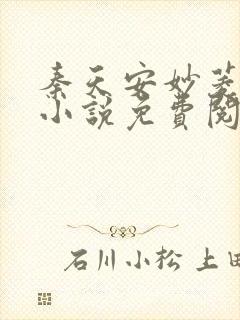 秦天安妙菱
小說免費閱
石川小松 上田